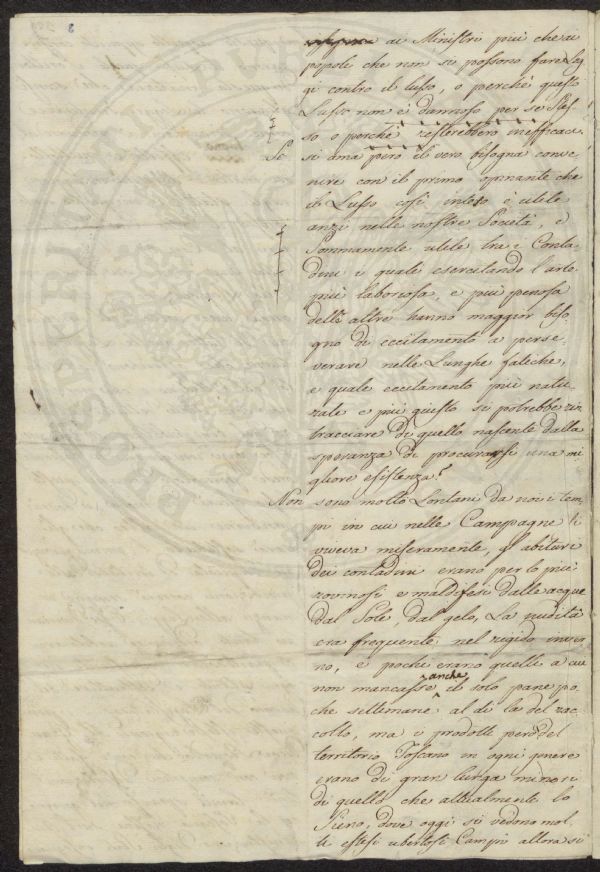 6
ai Ministri piú che ai
popoli che non si possono fare Leg
gi contro il lusso, o perchè questo
Lusso non è dannoso per se stes
so o perchè resterebbero inefficaci.
Se si ama però il vero bisogna conve
nire con il primo opinante che
il Lusso così inteso è utile
anzi nelle nostre Società, e
Sommamente utile tra i Conta
dini i quali esercitando l'arte
più laboriosa, e più penosa
dell'altre hanno maggior biso
gno di eccitamento a perse
verare nelle Lunghe fatiche,
e quale eccitamento più natu
rale e più giusto si potrebbe rin
tracciare di quello nascente dalla
speranza di procurarsi una mi
gliore esistenza?
Non sono molto Lontani da noi i tem
pi in cui nelle Campagne si
viveva miseramente, gl'abituri
dei contadini erano per lo più
rovinosi e maldifesi dalle acque
dal Sole, dal gelo, La nudità
era frequente nel rigido inver
no, e pochi erano quelli a cui
non mancasse anche il solo pane po
che settimane al di là del rac
colto, ma i prodotti però del
territorio Toscano in ogni genere
erano di gran lunga minori
di quello che attualmente lo
Sieno, dove oggi si vedono mol
ti estesi ubertosi Campi allora si